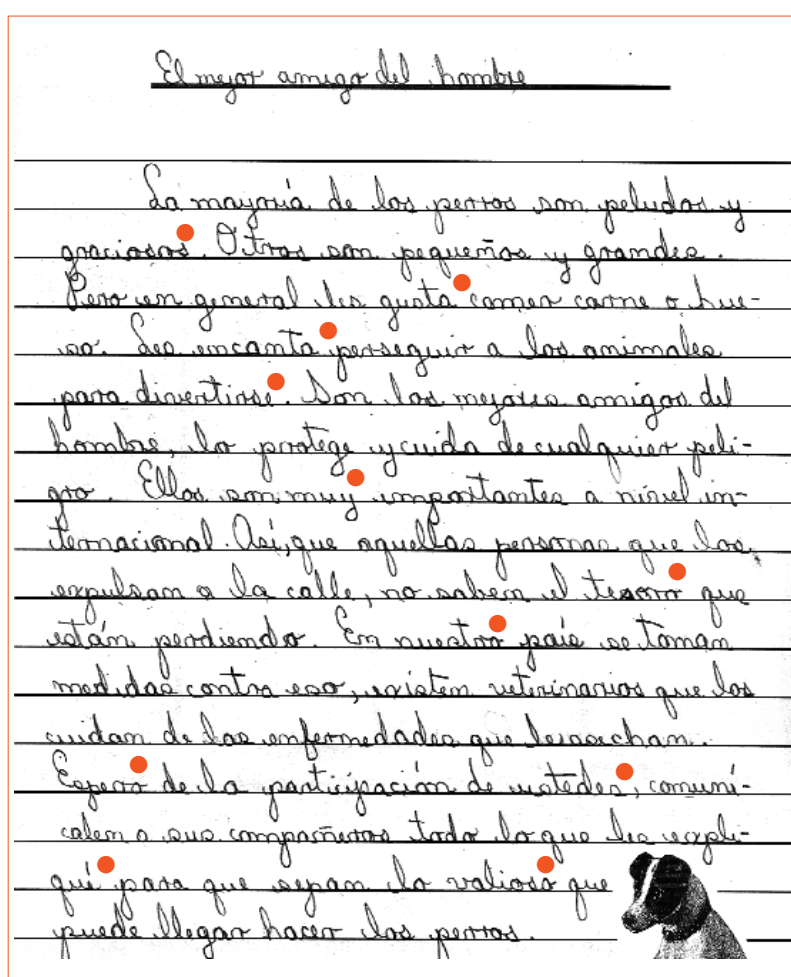 El mejor amigo del hombre
La mayoría de los perros son peludos y
graciosos. Otros son pequeños y grandes.
Pero en general les gusta comer carne o hue-
so. Les encanta perseguir a los animales
para divertirse. Son los mejores amigos del
hombre, lo protege y cuida de cualquier peli-
gro. Ellos son muy importantes a nivel in-
ternacional. Así, que aquellas personas que los
expulsan a la calle, no saben el tesoro que
están perdiendo. En nuestro país se toman
medidas contra eso, existen veterinarios que los
cuidan de las enfermedades que
Espero de la participación de ustedes, comuní-
calen a sus compañeros todo lo que les expli-
qué para que sepan lo valioso que
puede llegar hacer los perros.